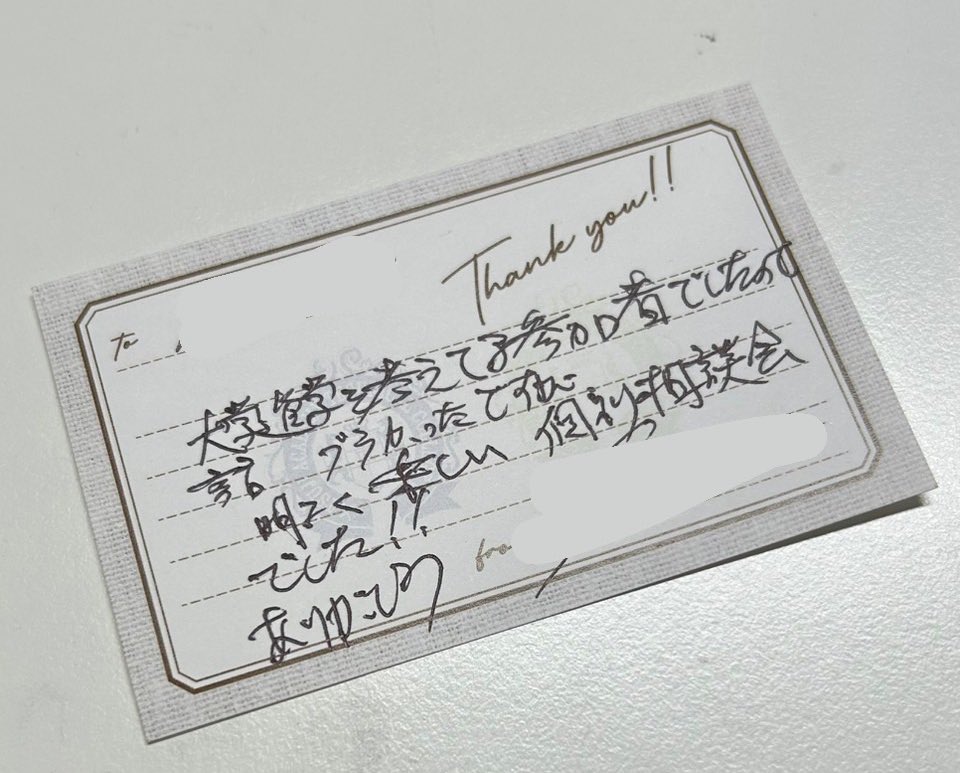 Thank you!!
to
大学進学を考えてる参加者でしたので
話ブラかったですが
明るく楽しい個別相談会
でした!!
ありがとう
from